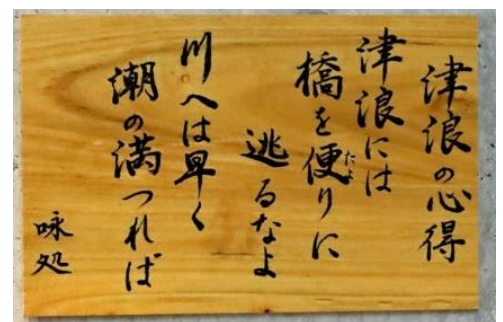 津浪の心得
津浪には
橋を便りに
逃るなよ
川へは早く
潮の満つれば
咏処